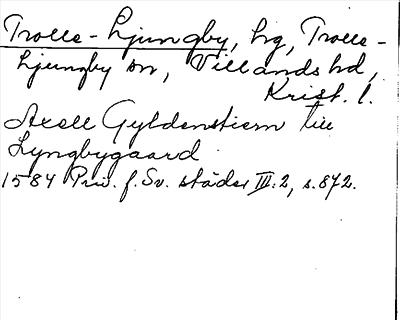 Trolle-Ljungby, hg, Trolle-
Ljungby sn, Villands hd,
Krist. l.
Axell Gyldenstiern till
Lyngbygaard
1584 Priv. f. Sv. städer III:2, s. 872.